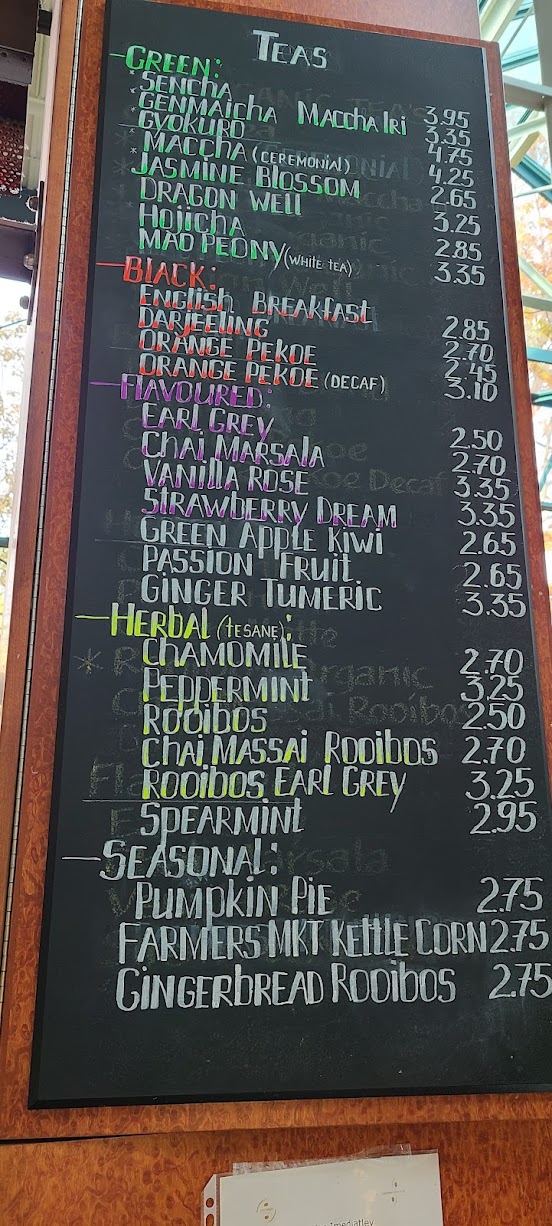 TEAS
—GREEN:
*SENCHA 3.95
*GENMAICHA MACCHA IRI 3.35
GYOKURO 4.75
*MACCHA (CEREMONIAL) 4.25
JASMINE BLOSSOM 2.65
DRAGON WELL 3.25
HOJICHA 2.85
MAO PEONY (WHITE TEA) 3.35
—BLACK:
ENGLISH BREAKFAST 2.85
DARJEELING 2.70
ORANGE PEKOE 2.45
ORANGE PEKOE (DECAF) 3.10
—FLAVOURED:
EARL GREY 2.50
CHAI MARSALA 2.70
VANILLA ROSE 3.35
STRAWBERRY DREAM 3.35
GREEN APPLE KIWI 2.65
PASSION FRUIT 2.65
GINGER TUMERIC 3.35
—HERBAL (TESANE):
CHAMOMILE 2.70
PEPPERMINT 3.25
ROOIBOS 2.50
CHAI MASSAI ROOIBOS 2.70
ROOIBOS EARL GREY 3.25
SPEARMINT 2.95
—SEASONAL:
PUMPKIN PIE 2.75
FARMERS MKT KETTLE CORN 2.75
GINGERBREAD ROOIBOS 2.75